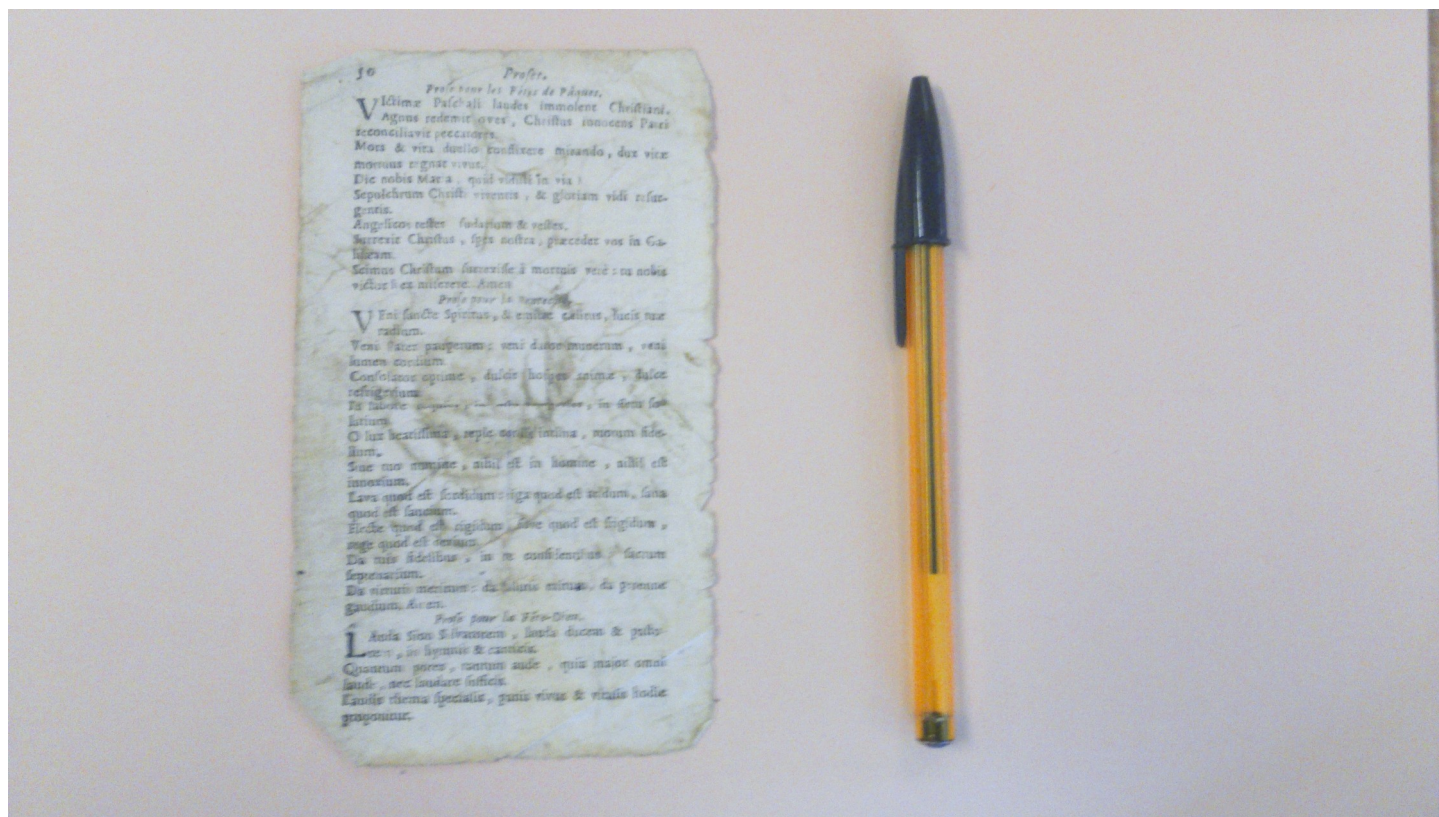 50 Proses.
Prose pour les Fêtes de Pâques.
VIctimæ Paschali laudes immolent Christiani.
Agnus redemit oves, Christus innocens Patri
reconciliavit peccatores.
Mors & vita duello conflixere mirando, dux vitæ
mortuus regnat vivus.
Dic nobis Maria, quid vidisti in via ?
Sepulchrum Christi viventis, & gloriam vidi resur-
gentis.
Angelicos testes sudarium & vestes.
Surrexit Christus, spes nostra, præcedet vos in Ga-
lilæam.
Scimus Christum surrexisse à mortuis verè : tu nobis
victor Rex miserere. Amen
Prose pour la
VEni sancte Spiritus, & emitte cælitus, lucis tuæ
radium.
Veni Pater pauperum : veni dator munerum, veni
lumen cordium.
Consolator optime, dulcis hospes animæ, dulce
refrigerium.
In labore in fletu so-
latium.
O lux beatissima, reple cordis intima, tuorum fide-
lium.
Sine tuo numine, nihil est in homine, nihil est
innoxium.
Lava quod est sordidum : riga quod est aridum, sana
quod est saucium.
Flecte quod est rigidum, fove quod est frigidum,
rege quod est devium.
Da tuis fidelibus, in te confidentibus, sacrum
septenarium.
Da virtutis meritum : da salutis exitum, da perenne
gaudium. Amen.
Prose pour la Fête-Dieu.
LAuda Sion Salvatorem, lauda ducem & pasto-
rem, in hymnis & canticis.
Quantum potes, tantum aude, quia major omni
laude, nec laudare sufficis.
Laudis thema specialis, panis vivus & vitalis hodie
proponitur.